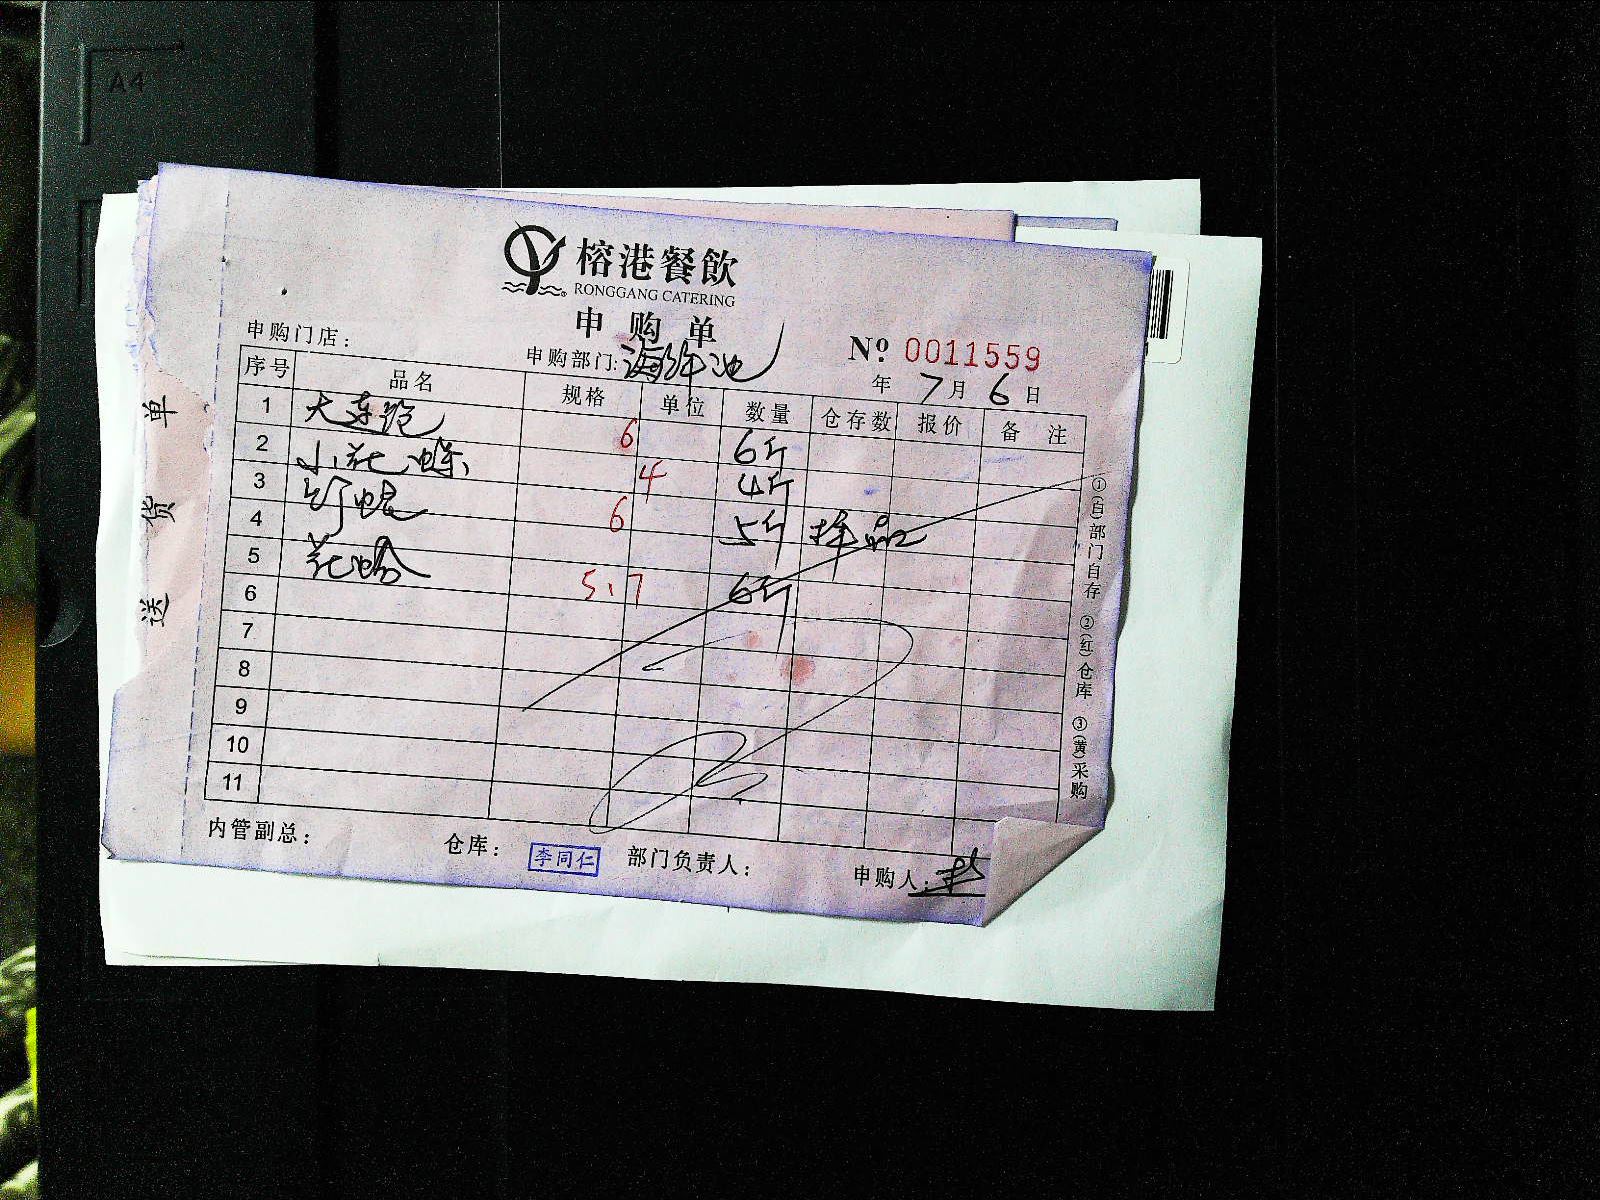 A4
榕港餐飲
RONGGANG CATERING
申购单
申购门店：
申购部门：海鲜池
№ 0011559
年 7 月 6 日
序号 品名 规格 单位 数量 仓存数 报价 备 注
1 大连鲍 6 6斤
2 小花螺 4 4斤
3 6 5斤 样品
4 花蛤 5.7 6斤
5
6
7
8
9
10
11
内管副总： 仓库： 李同仁 部门负责人： 申购人：
①(白)部门自存 ②(红)仓库 ③(黄)采购
送货单